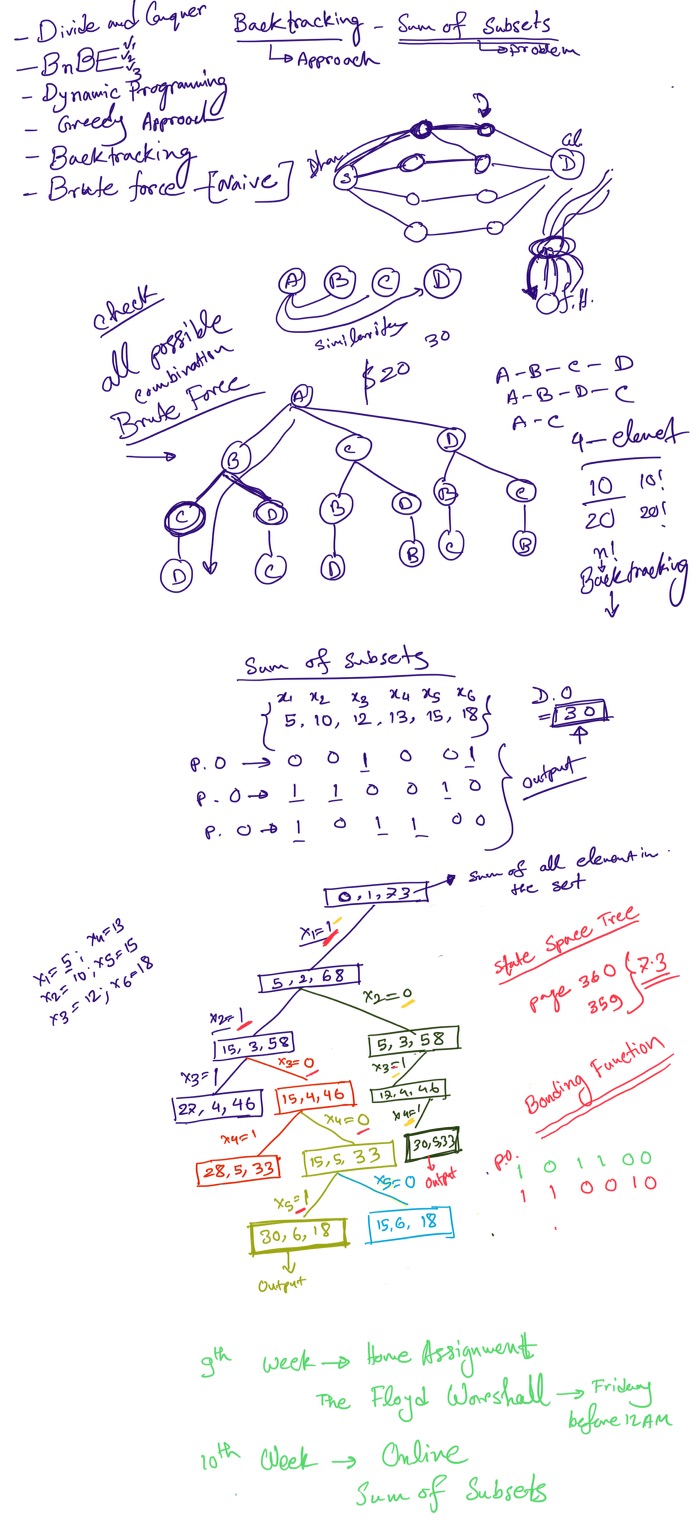 - Divide and Conquer
- BnBE v1 v2 v3
- Dynamic Programming
- Greedy Approach
- Backtracking
- Brute force - [Naive]
Backtracking - Sum of Subsets
Approach
Problem
S
D
A B C D
Similarity
30
$20
f.H.
check
all possible
combination
Brute Force
A
B C D
C D B D B C
D C D B C B
A-B-C-D
A-B-D-C
A-C
4-elemet
10 10!
20 20!
n!
Backtracking
Sum of Subsets
x1 x2 x3 x4 x5 x6
{5, 10, 12, 13, 15, 18}
D.O
= 30
P.O → 0 0 1 0 0 1
P.O → 1 1 0 0 1 0
P.O → 1 0 1 1 0 0
Output
0, 1, 73
Sum of all element in
the sert
x1=1
x1=5; x4=13
x2=10; x5=15
x3=12; x6=18
5, 2, 68
x2=1
x2=0
15, 3, 58
5, 3, 58
x3=1
x3=0
x3=1
27, 4, 46
15, 4, 46
17, 4, 46
x4=1
x4=0
x4=1
28, 5, 33
15, 5, 33
30,5,33
Output
x5=1
x5=0
30, 6, 18
15, 6, 18
Output
State Space Tree
page 360
359
7.3
Bonding Function
P.O.
1 0 1 1 0 0
1 1 0 0 1 0
9th week → Home Assignment
The Floyd Worshall → Friday
before 12AM
10th Week → Online
Sum of Subsets